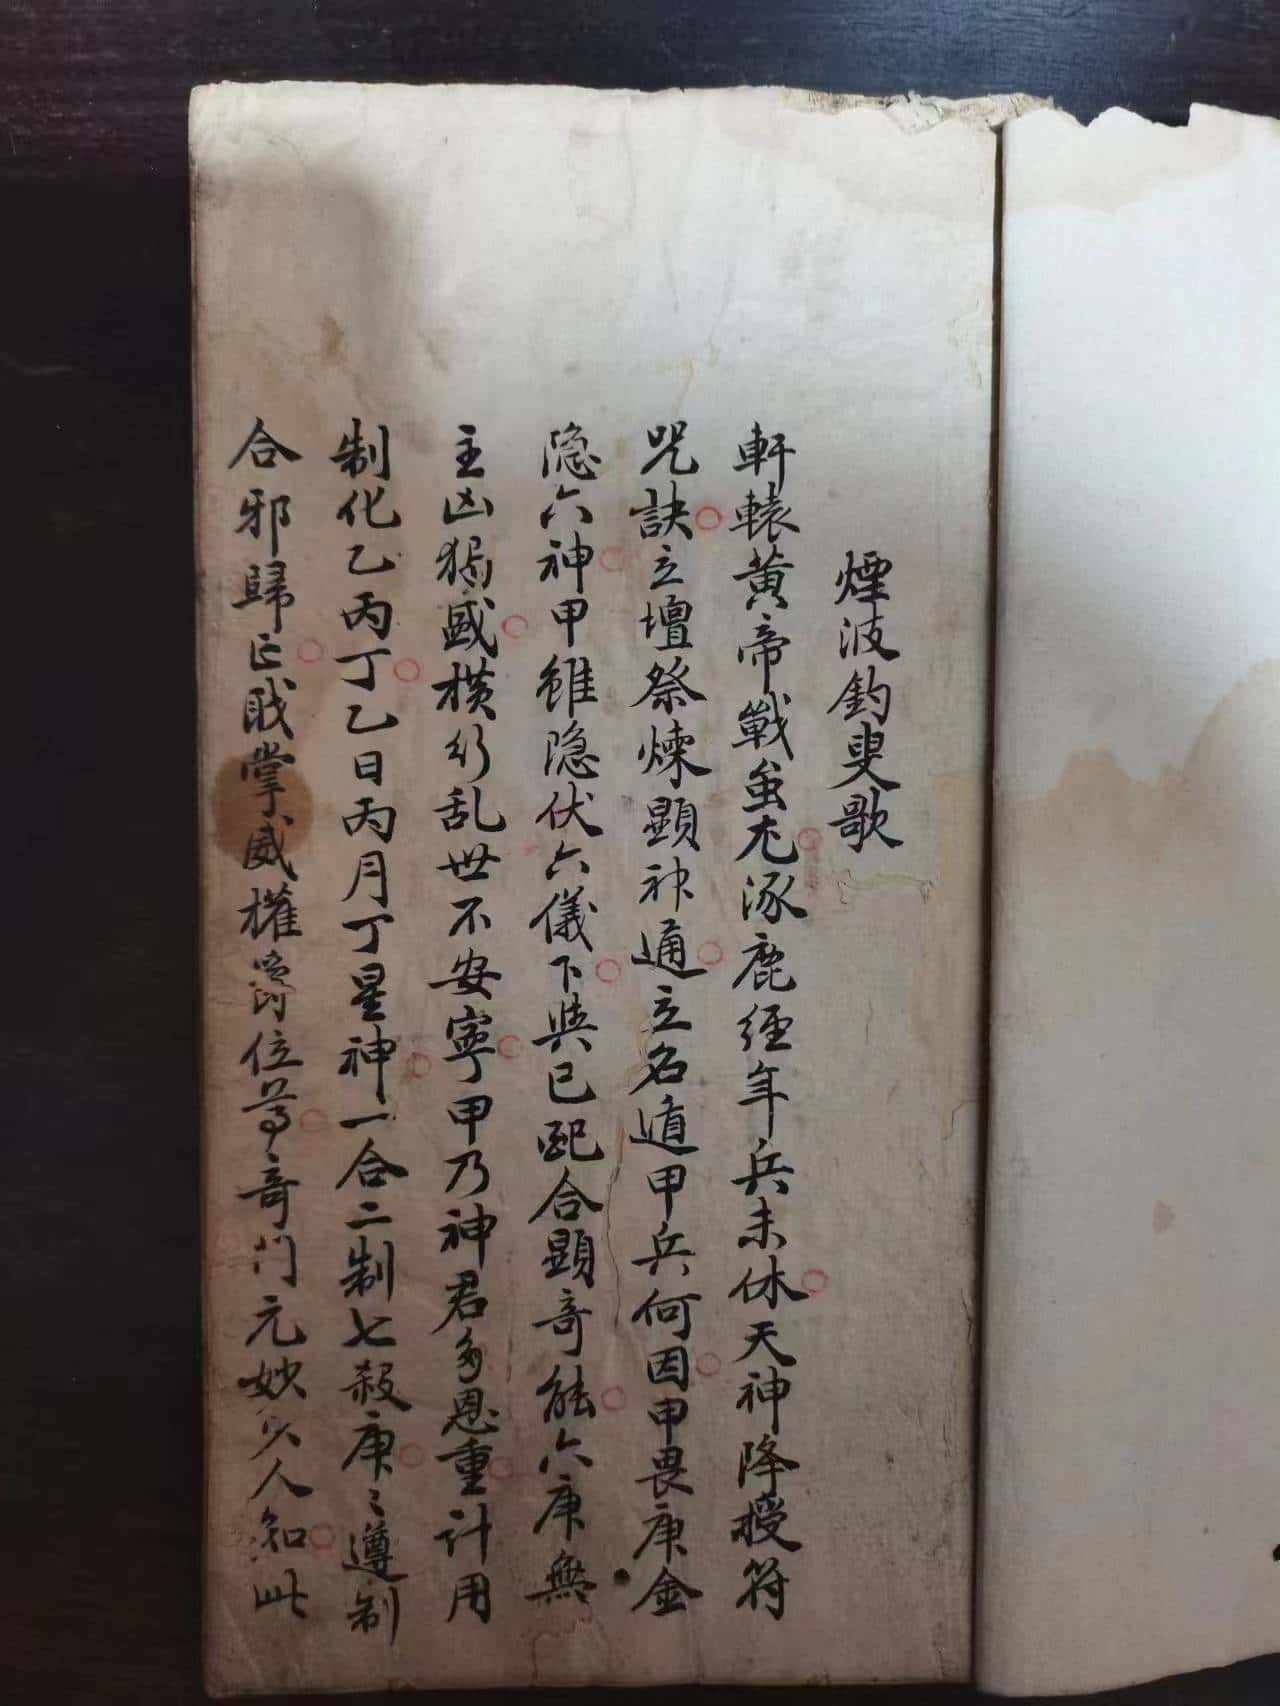 煙波釣叟歌
軒轅黃帝戰蚩尤涿鹿经年兵未休天神降授符
咒訣立壇祭煉顕神通立名遁甲兵何因甲畏庚金
隐六神甲雖隐伏六儀下與己配合顕奇能六庚無
主凶猖盛横行乱世不安寧甲乃神君多恩重計用
制化乙丙丁乙日丙月丁星神一合二制七殺庚〻遵制
合邪歸正戝掌威權爵位尊奇门元妙少人知此